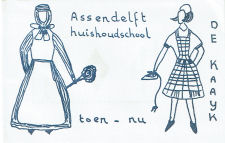 Assendelft
huishoudschool
toen - nu
DE KAAYK